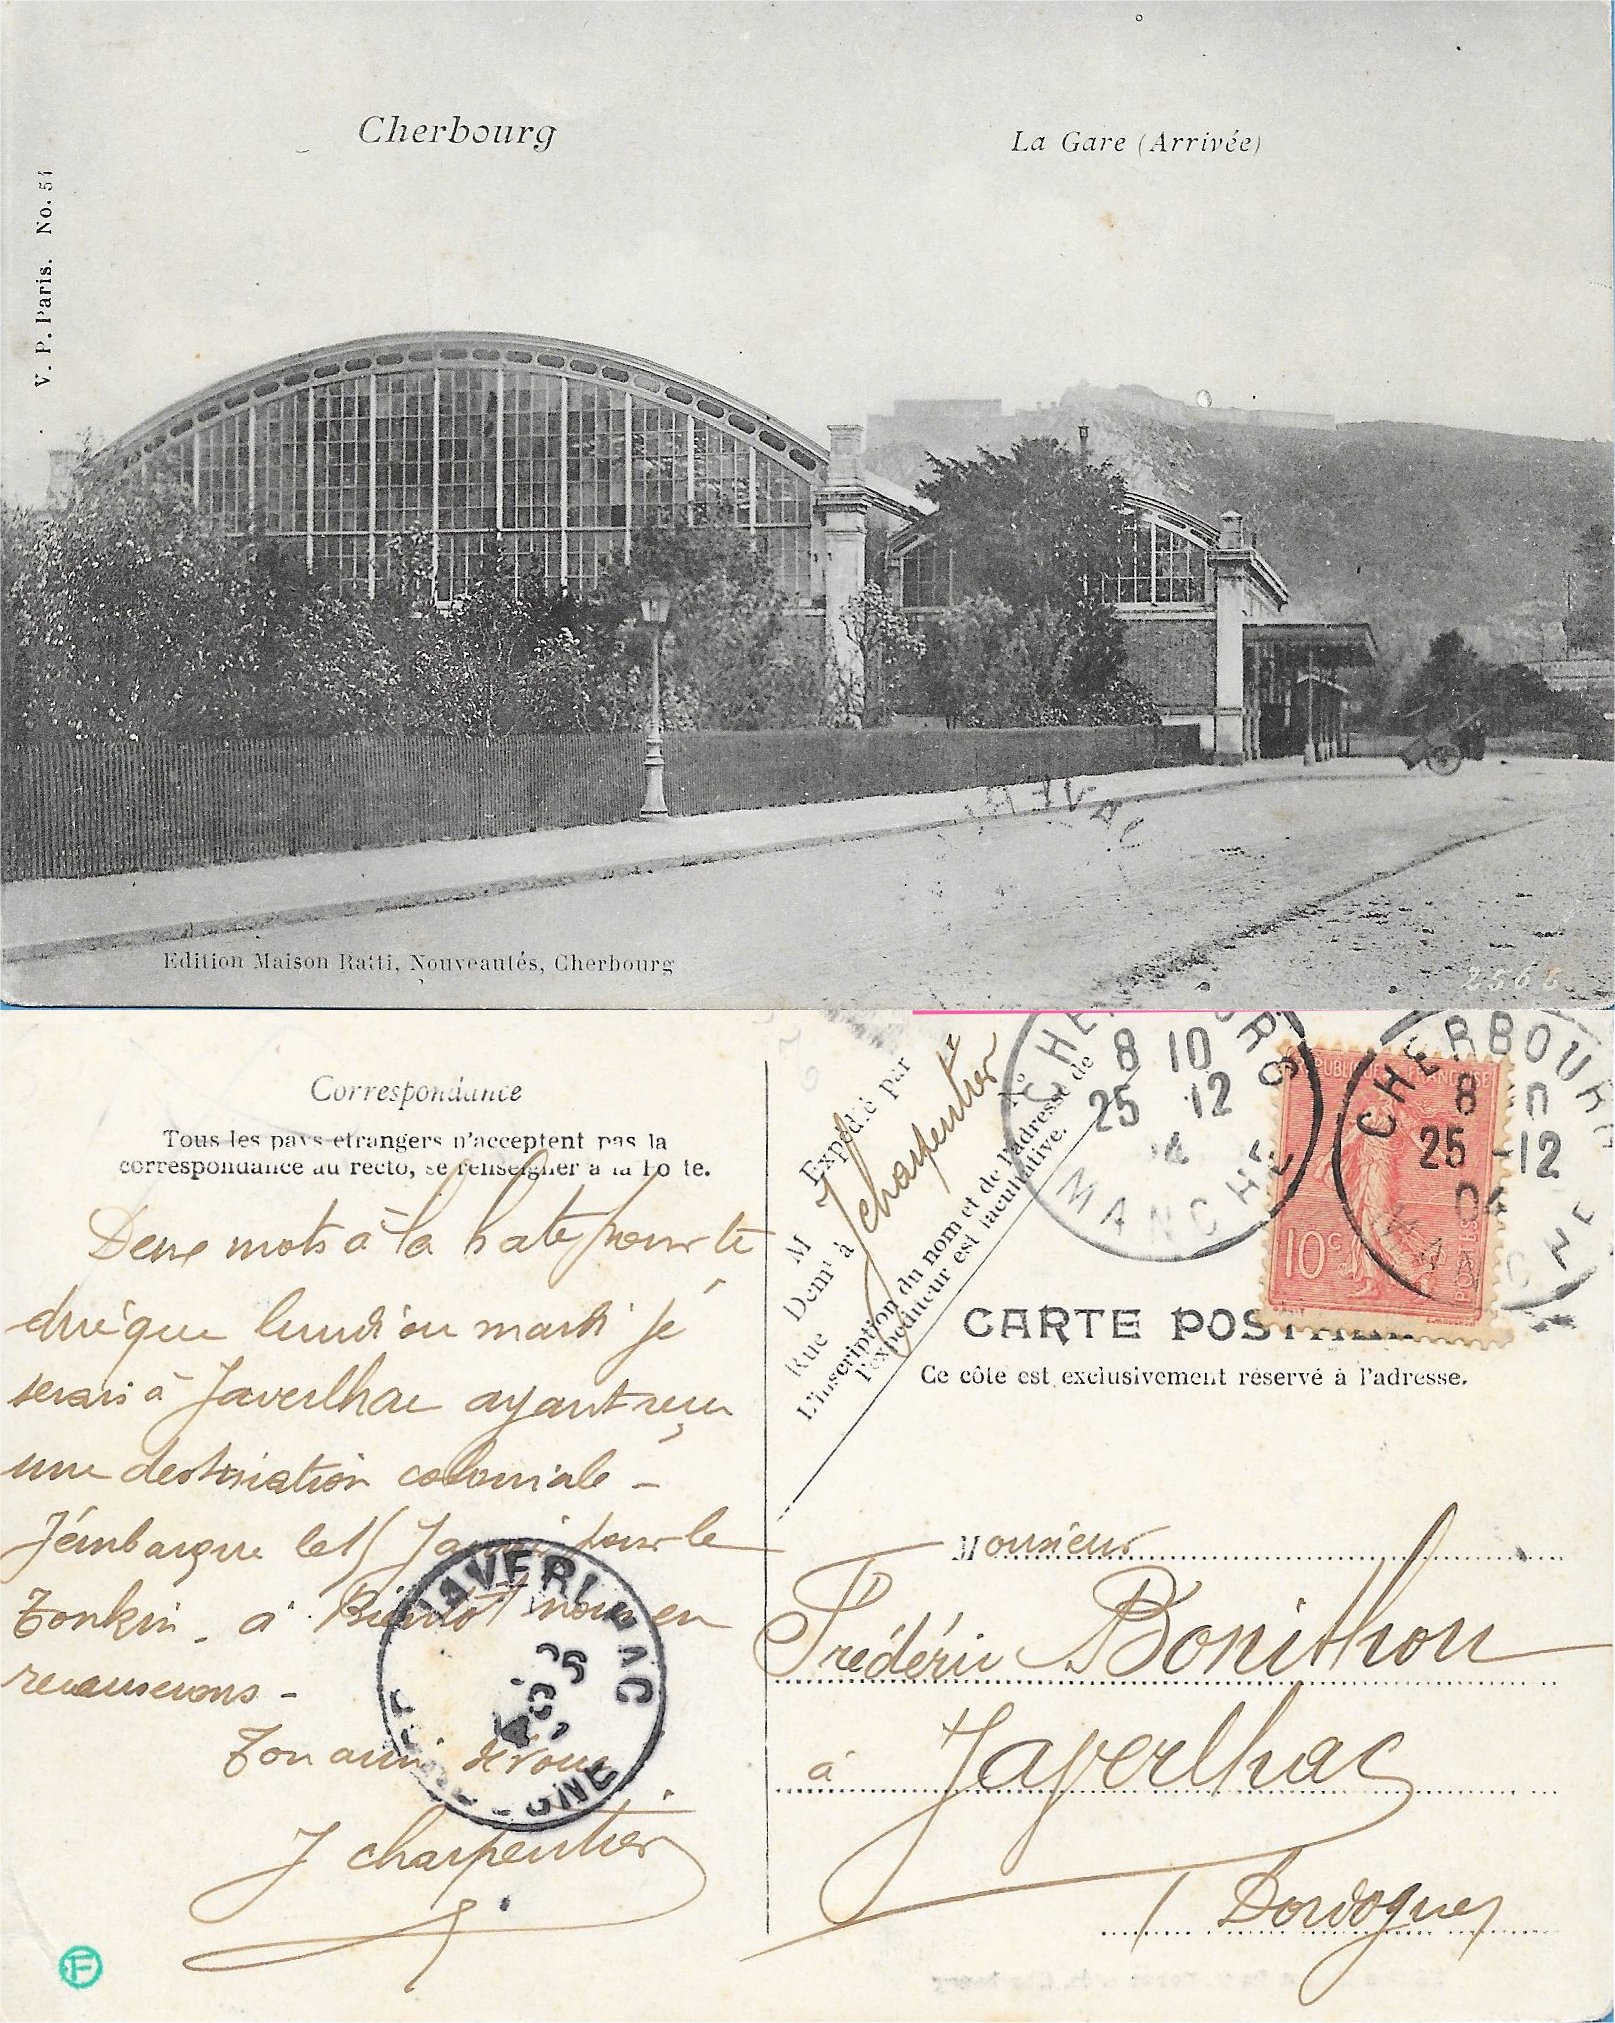 Cherbourg
La Gare (Arrivée)
V. P. Paris. No. 51
Edition Maison Ratti, Nouveautés, Cherbourg
2565
Correspondance
Tous les pays etrangers n'acceptent pas la
correspondance au recto, se renseigner à la Poste.
Deux mots à la hate pour te
dire que lundi ou mardi je
serais à Javerlhac ayant reçu
une destination coloniale -
J'embarque le 15 Janvier pour le
Tonkin - à Bientôt nous en
recauserons -
Ton ami dévoué
J Charpentier
JAVERLHAC
DORDOGNE
F
Expédié par
M J Charpentier
Demt à
Rue No
L'inscription du nom et de l'adresse de
l'expéditeur est facultative.
CHERBOURG
8 10
25 12
04
MANCHE
REPUBLIQUE FRANÇAISE
10c
POSTES
CHERBOURG
8 10
25 -12
04
MANCHE
CARTE POSTALE
Ce côte est exclusivement réservé à l'adresse.
Monsieur
Frédéric Bonithon
à Javerlhac
Dordogne